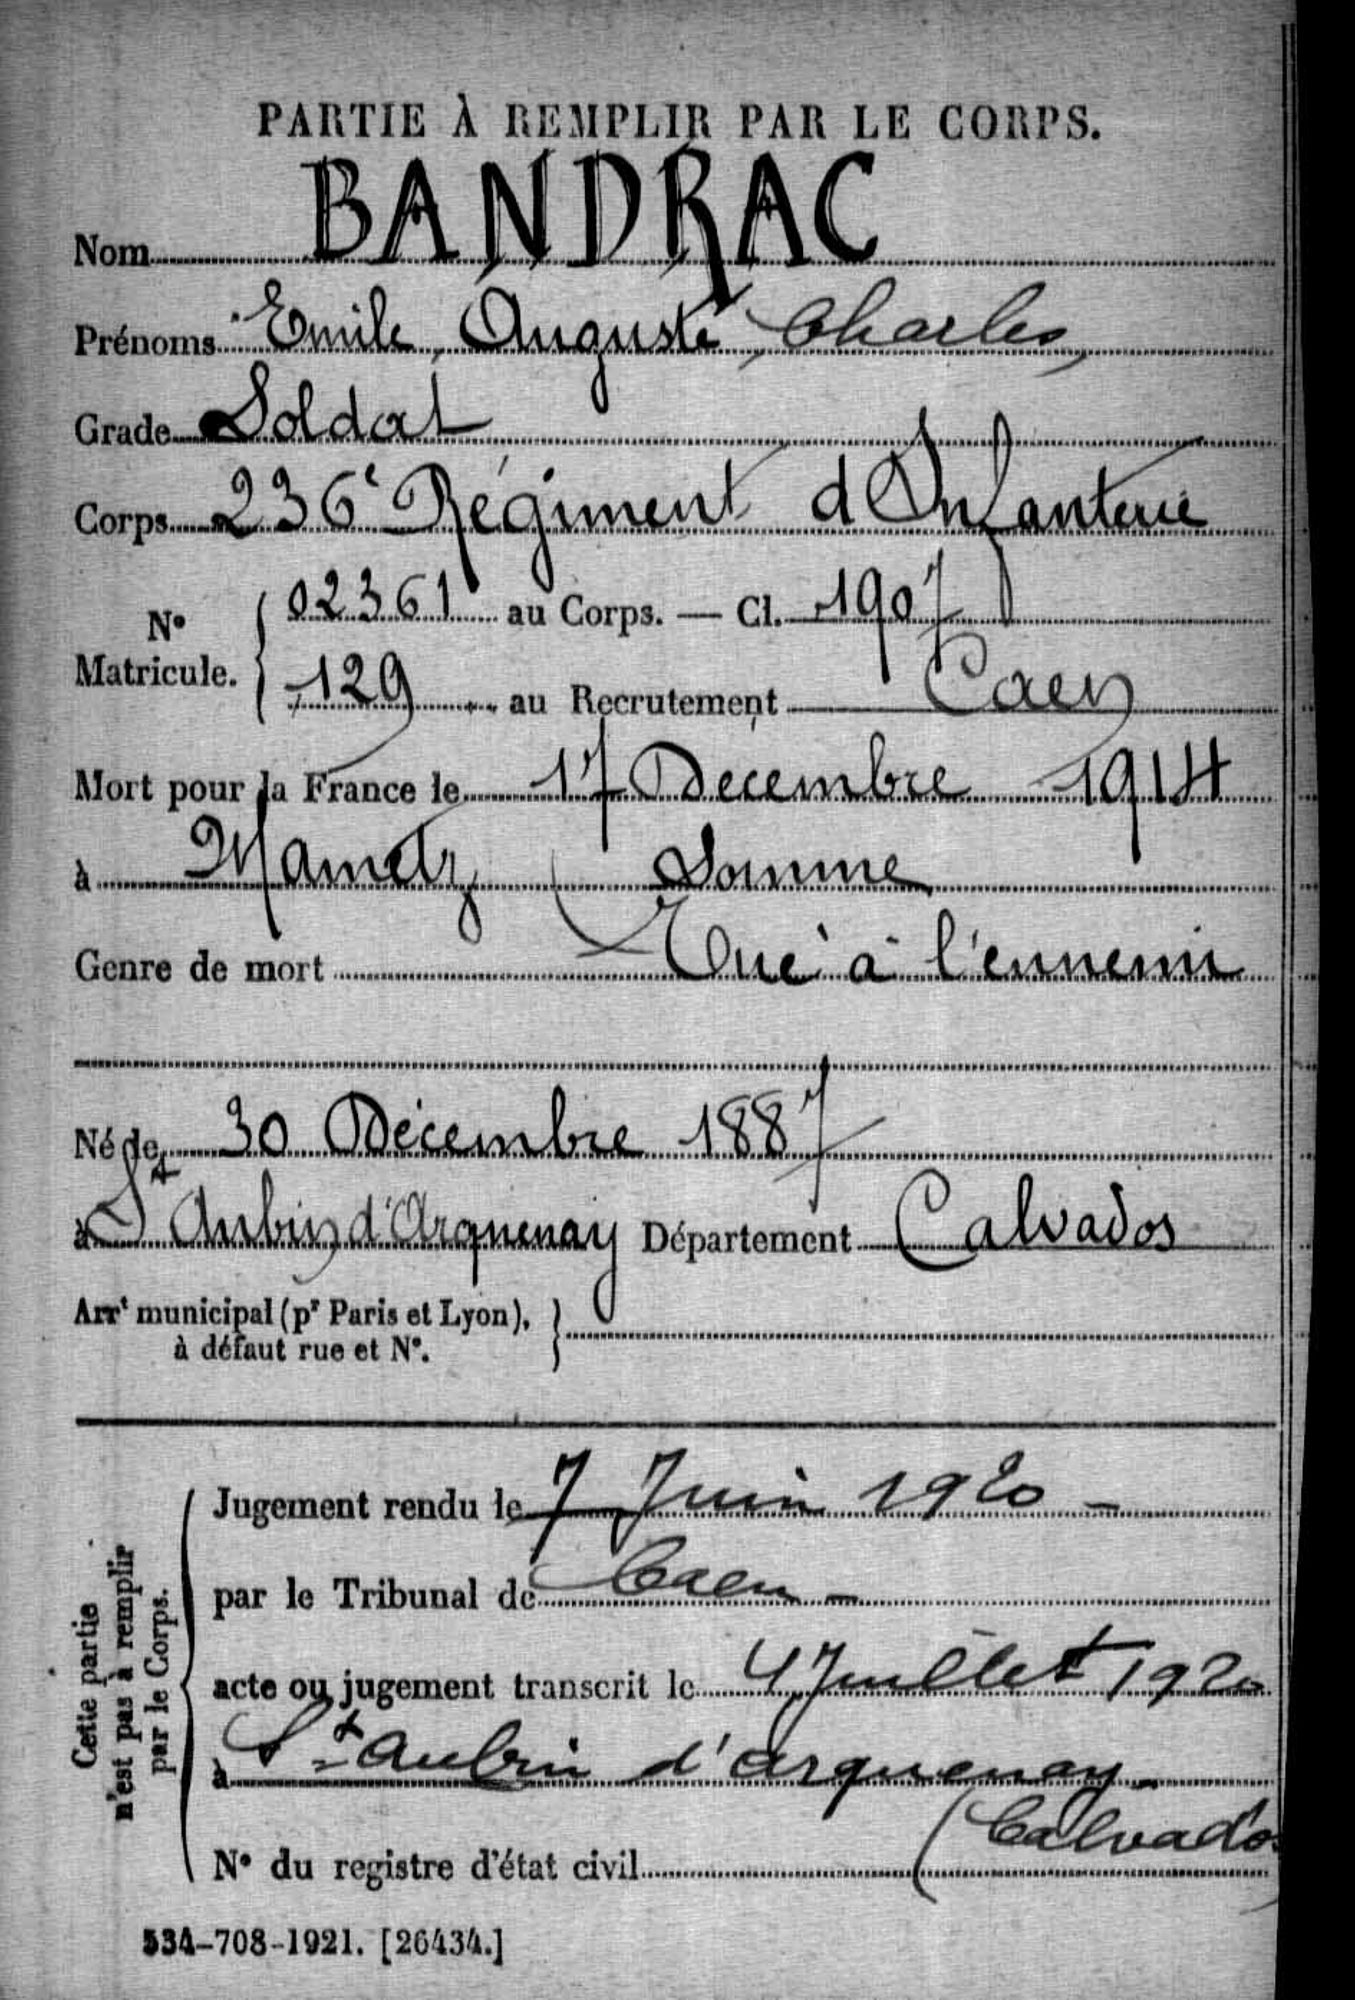 PARTIE À REMPLIR PAR LE CORPS.
Nom BANDRAC
Prénoms Emile, Auguste, Charles,
Grade Soldat
Corps 236e Régiment d'Infanterie
N° Matricule. 02361 au Corps. — Cl. 1907
129 au Recrutement Caen
Mort pour la France le 17 Décembre 1914
à Mametz (Somme
Genre de mort Tué à l'ennemi
Né le 30 Décembre 1887
à St Aubin d'Arquenay Département Calvados
Arrt municipal (pr Paris et Lyon),
à défaut rue et N°.
Cette partie
n'est pas à remplir
par le Corps.
Jugement rendu le 7 Juin 1920 -
par le Tribunal de Caen -
acte ou jugement transcrit le 4 Juillet 1920
à St Aubin d'arquenay -
(Calvados
N° du registre d'état civil
534-708-1921. [26434.]